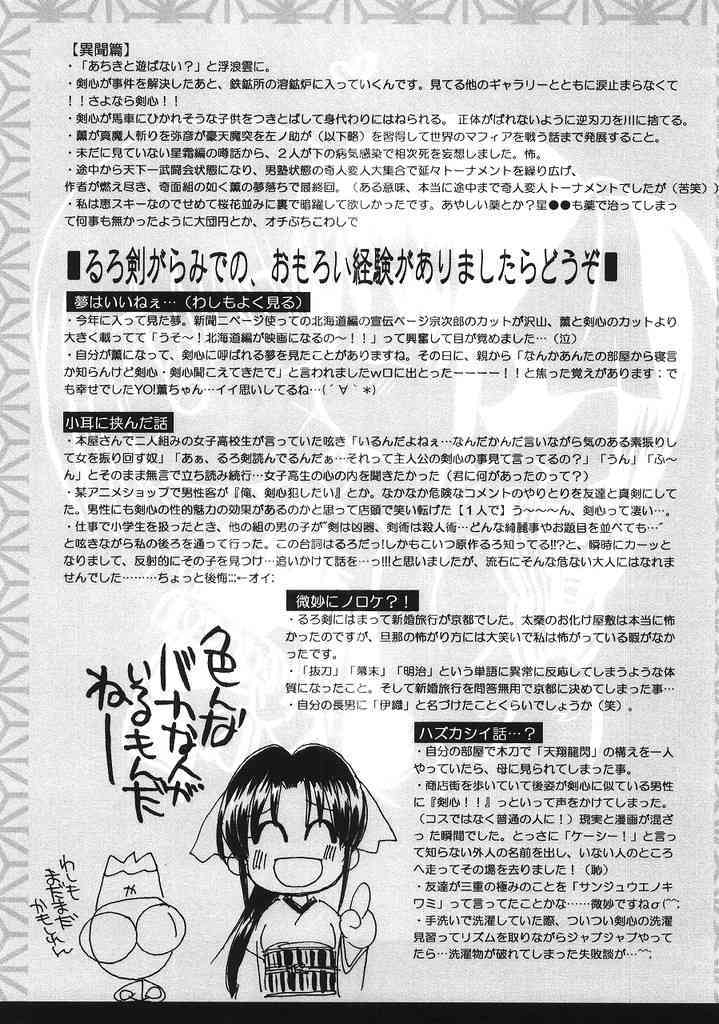 【異聞篇】
・「あちきと遊ばない？」と浮浪雲に。
・剣心が事件を解決したあと、鉄鉱所の溶鉱炉に入っていくんです。見てる他のギャラリーとともに涙止まらなくて
！！さよなら剣心！！
・剣心が馬車にひかれそうな子供をつきとばして身代わりにはねられる。 正体がばれないように逆刃刀を川に捨てる。
・薫が真魔人斬りを弥彦が豪天魔突を左ノ助が（以下略）を習得して世界のマフィアを戦う話まで発展すること。
・未だに見ていない星霜編の噂話から、２人が下の病気感染で相次死を妄想しました。怖。
・途中から天下一武闘会状態になり、男塾状態の奇人変人大集合で延々トーナメントを繰り広げ、
作者が燃え尽き、奇面組の如く薫の夢落ちで最終回。（ある意味、本当に途中まで奇人変人トーナメントでしたが（苦笑））
・私は恵スキーなのでせめて桜花並みに裏で暗躍して欲しかったです。あやしい薬とか？星●●も薬で治ってしまっ
て何事も無かったように大団円とか、オチぶちこわしで
■るろ剣がらみでの、おもろい経験がありましたらどうぞ■
夢はいいねぇ…（わしもよく見る）
・今年に入って見た夢。新聞二ページ使っての北海道編の宣伝ページ宗次郎のカットが沢山、薫と剣心のカットより
大きく載ってて「うそ～！北海道編が映画になるの～！！」って興奮して目が覚めました…（泣）
・自分が薫になって、剣心に呼ばれる夢を見たことがありますね。その日に、親から「なんかあんたの部屋から寝言
か知らんけど剣心・剣心聞こえてきたで」と言われましたｗ口に出とったーーーー！！と焦った覚えがあります；で
も幸せでしたYO!薫ちゃん…イイ思いしてるね…(´∀｀*)
小耳に挟んだ話
・本屋さんで二人組みの女子高校生が言っていた呟き「いるんだよねぇ…なんだかんだ言いながら気のある素振りし
て女を振り回す奴」「あぁ、るろ剣読んでるんだぁ…それって主人公の剣心の事見て言ってるの？」「うん」「ふ～
ん」とそのまま無言で立ち読み続行…女子高生の心の内を聞きたかった（君に何があったのって？）
・某アニメショップで男性客が『俺、剣心犯したい』とか。なかなか危険なコメントのやりとりを友達と真剣にして
た。男性にも剣心の性的魅力の効果があるのかと思って店頭で笑い転げた【１人で】う～～～ん、剣心って凄い…。
・仕事で小学生を扱ったとき、他の組の男の子が”剣は凶器、剣術は殺人術…どんな綺麗事やお題目を並べても…”
と呟きながら私の後ろを通って行った。この台詞はるろだっ!しかもこいつ原作るろ知ってる!!?と、瞬時にカーッと
なりまして、反射的にその子を見つけ…追いかけて話を…っ!!!と思いましたが、流石にそんな危ない大人にはなれま
せんでした………ちょっと後悔;;;←オイ;
微妙にノロケ？！
・るろ剣にはまって新婚旅行が京都でした。太秦のお化け屋敷は本当に怖
かったのですが、旦那の怖がり方には大笑いで私は怖がっている暇がなか
ったです。
・「抜刀」「幕末」「明治」という単語に異常に反応してしまうような体
質になったこと。そして新婚旅行を問答無用で京都に決めてしまった事…
・自分の長男に「伊織」と名づけたことくらいでしょうか（笑）。
ハズカシイ話…？
・自分の部屋で木刀で「天翔龍閃」の構えを一人
やっていたら、母に見られてしまった事。
・商店街を歩いていて後姿が剣心に似ている男性
に『剣心！！』っといって声をかけてしまった。
（コスではなく普通の人に！）現実と漫画が混ざ
った瞬間でした。とっさに「ケーシー！」と言っ
て知らない外人の名前を出し、いない人のところ
へ走ってその場を去りました！（恥）
・友達が三重の極みのことを「サンジュウエノキ
ワミ」って言ってたことかな……微妙ですねσ(^^;
・手洗いで洗濯していた際、ついつい剣心の洗濯
見習ってリズムを取りながらジャブジャブやって
たら…洗濯物が破れてしまった失敗談が…^^;
色んな
バカな人が
いるもんだ
ねー
わしも
まだまだ
かもしれん